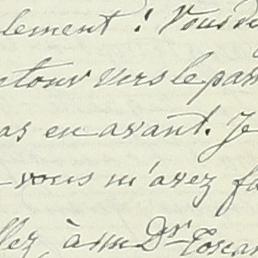 lement! Vous de
ntour vers le pas
as en avant. Je
vous m'avez fa
llez, à un Dr